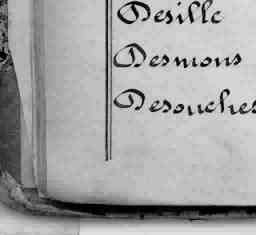 Desille
Desmons
Desouches